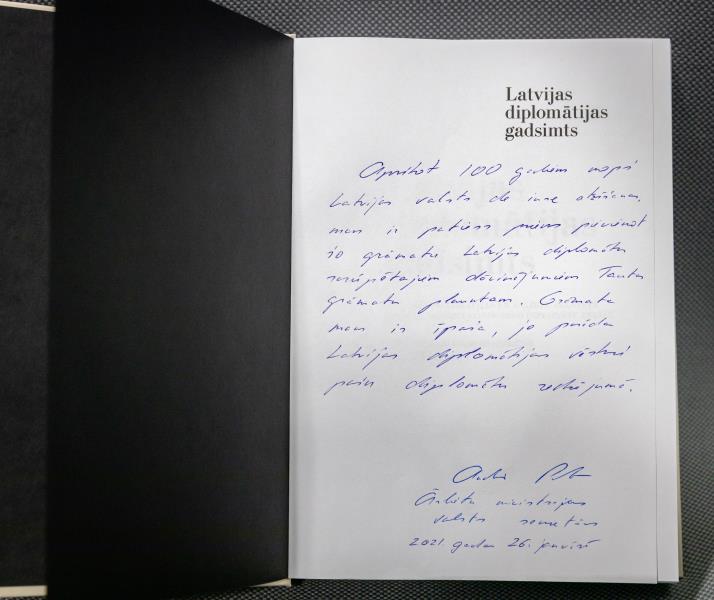 Latvijas
diplomātijas
gadsimts
Apritot 100 gadiem kopš
Latvijas valsts de iure atzīšanas,
man ir patiess prieks pievienot
šo grāmatu Latvijas diplomātu
sarūpētajiem dāvinājumiem Tautas
grāmatu plauktam. Grāmata
man ir īpaša, jo parāda
Latvijas diplomātijas vēsturi
pašu diplomātu redzējumā.
Ārlietu ministrijas
valsts sekretārs
2021. gada 26. janvārī